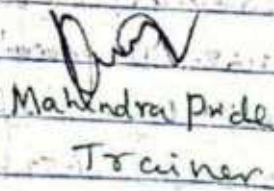 Mahindra Pride
Trainer